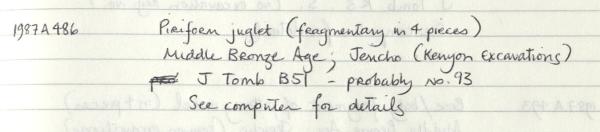 1987A486 Piriform juglet (fragmentary in 4 pieces)
Middle Bronze Age; Jericho (Kenyon Excavations)
J Tomb B51 - probably no. 93
See computer for details